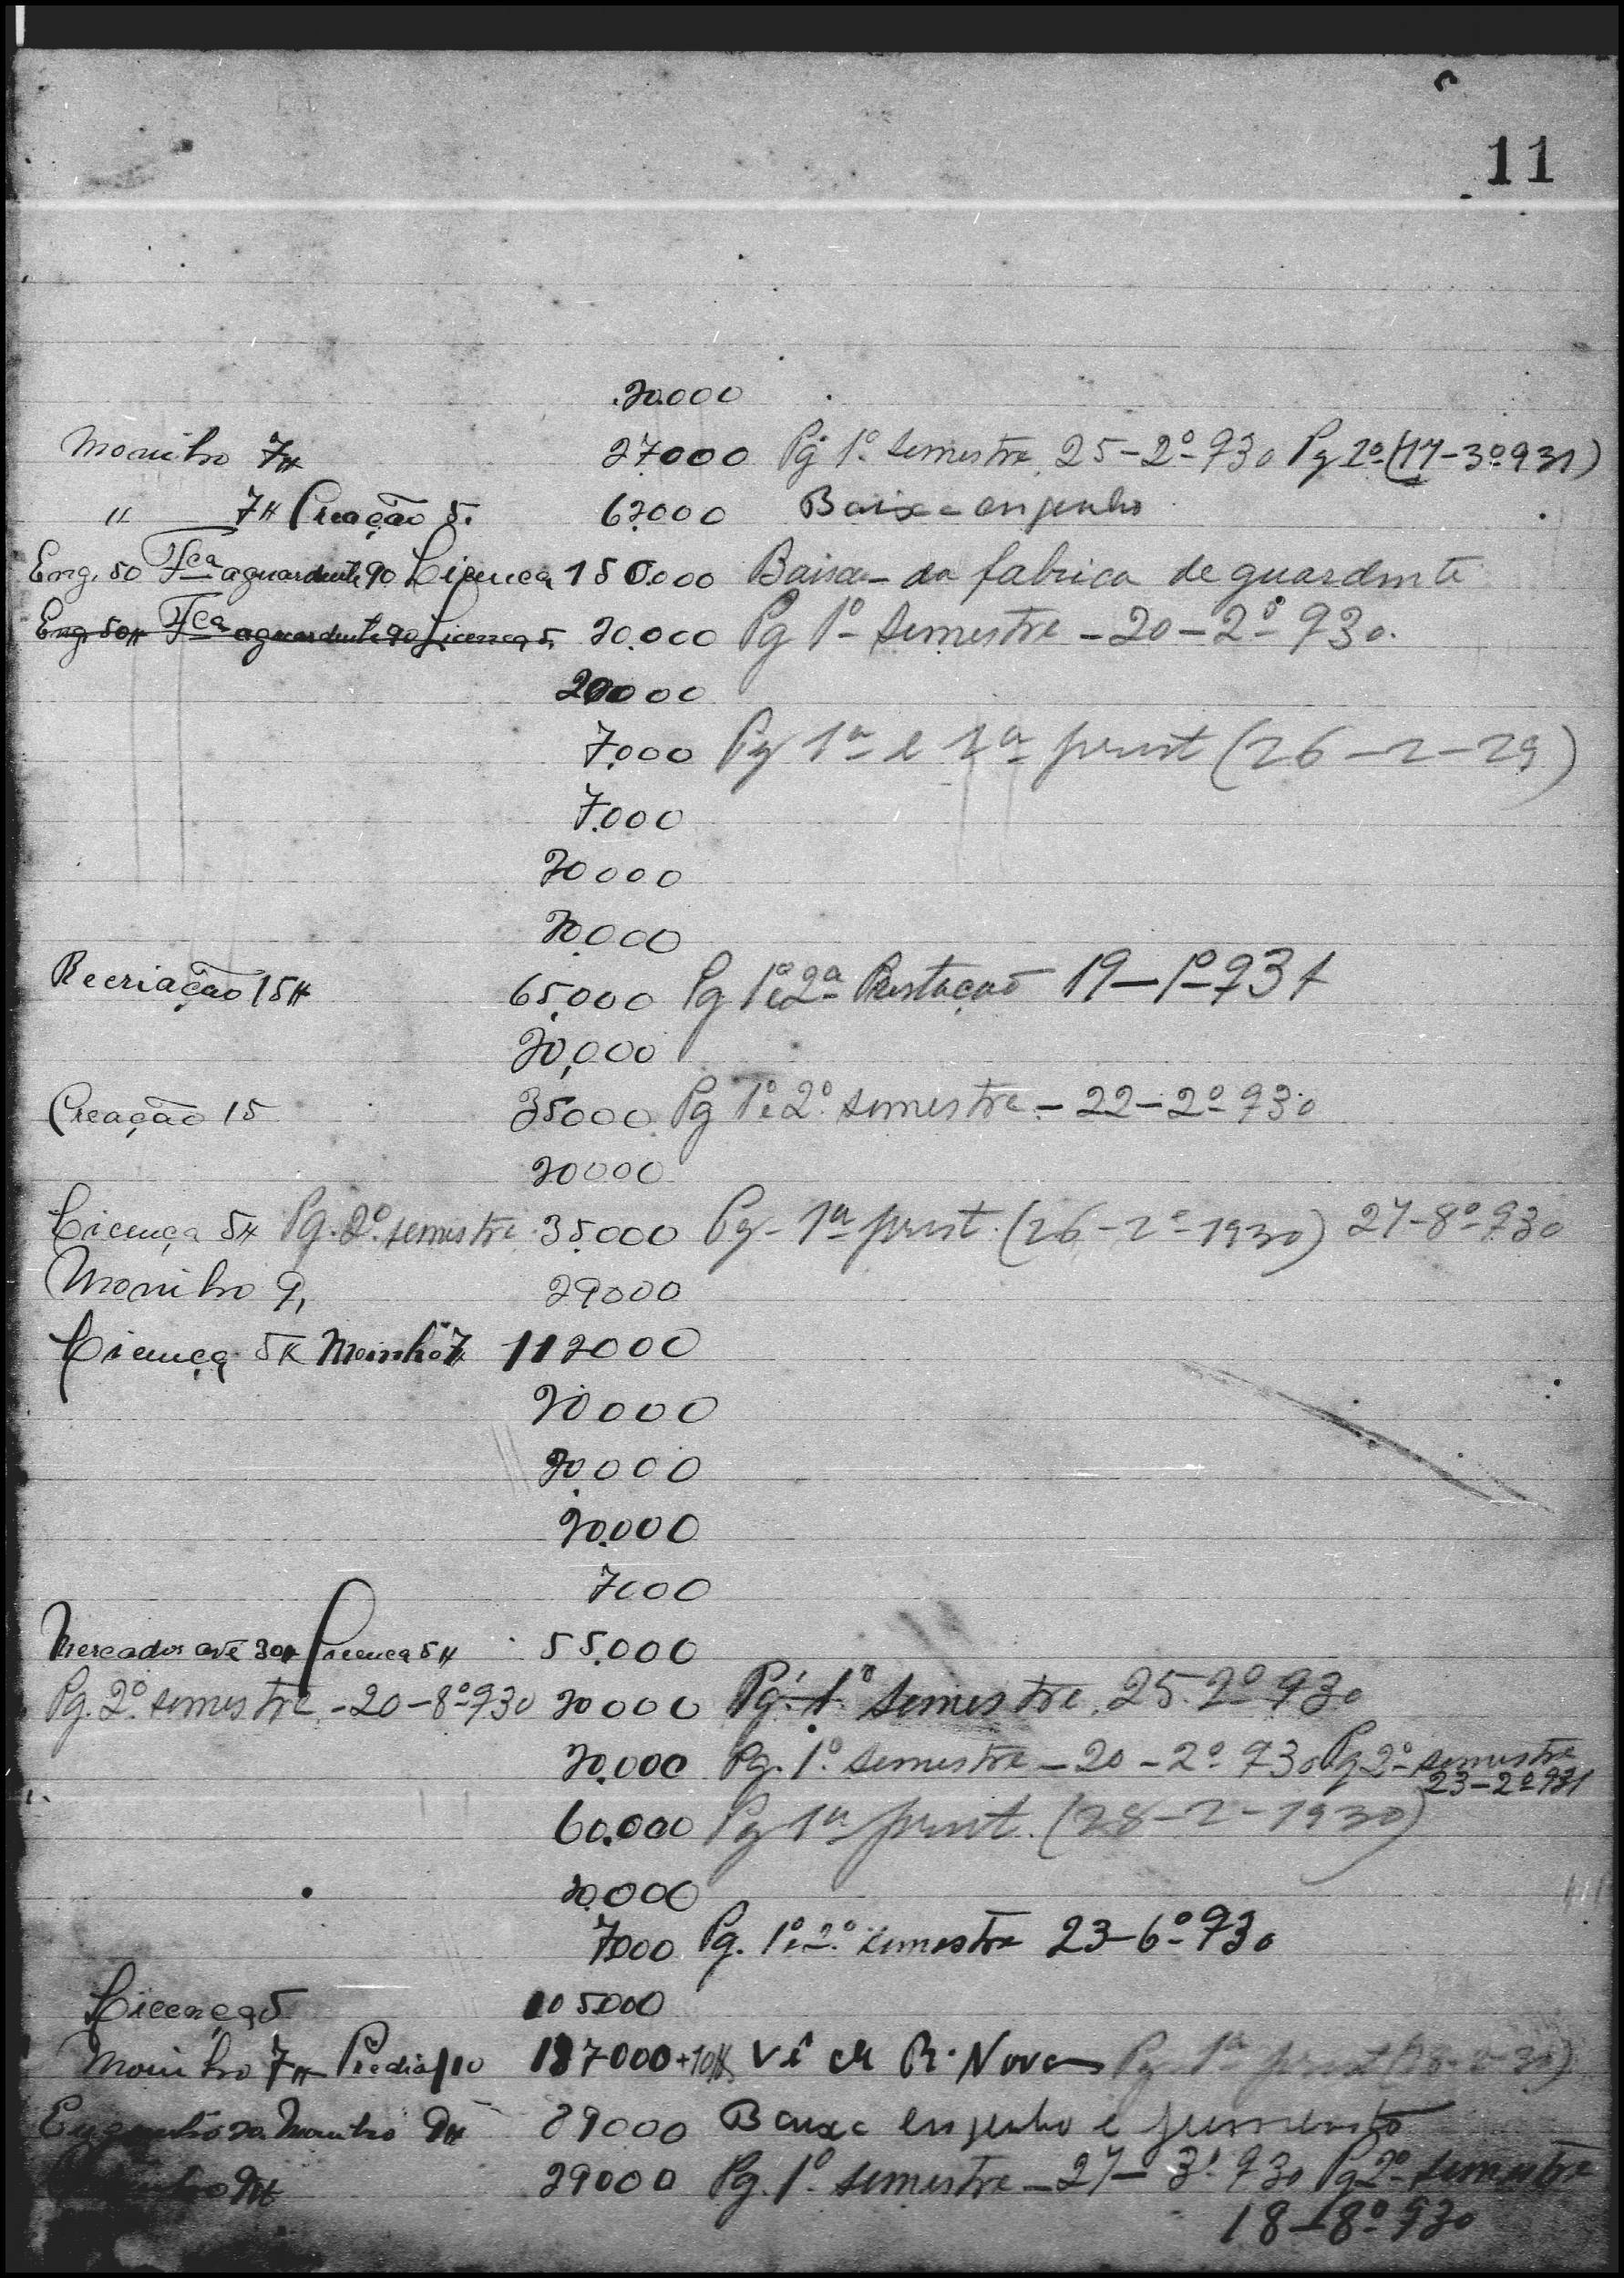 11
20.000
Moniho 7# 27.000 Pg 1º semestre 25-2º-930 Pg 2º (17-3º931)
" 7# Creação 5. 62000 Baixa engenho
Eng. 50 Fca aguardente 90 Licença 150.000 Baixa da fabrica de guardente
Eng 50# Fca aguardente 90 Licença 5 20.000 Pg 1º semestre - 20-2º-930.
20000
7.000 Pg 1ª e 2ª prest (26-2-29)
7.000
20000
20.000
Recriação 15# 65,000 Pg 1ª e 2ª Prestação 19-1º-931
20,000
Creação 15 35000 Pg 1º e 2º semestre - 22-2º-930
20000
Licença 5# Pg. 2º semestre 35.000 Pg- 1ª prest. (26-2º-1930) 27-8º-930
Moniho 9, 29000
Licença 5# Moinho 7# 112000
20000
20.000
20.000
7000
Mercador 30# Licença 5# 55.000
Pg. 2º semestre - 20-8º-930 20000 Pg. 1º semestre 25-2º-930
20.000 Pg. 1º semestre - 20-2º-930 Pg 2º semestre
23-2º-931
60.000 Pg 1ª prest. (28-2-1930)
20.000
7000 Pg. 1º e 2º semestre 23-6º-930
Licença 5 105000
Moniho 7# Predial 10 187000+10# R. Nova Pg 1ª prest
Engenho 20. Moniho 9# 89000 Baixa engenho e
9# 29000 Pg. 1º semestre - 27-3º-930 Pg 2º semestre
18-8º-930